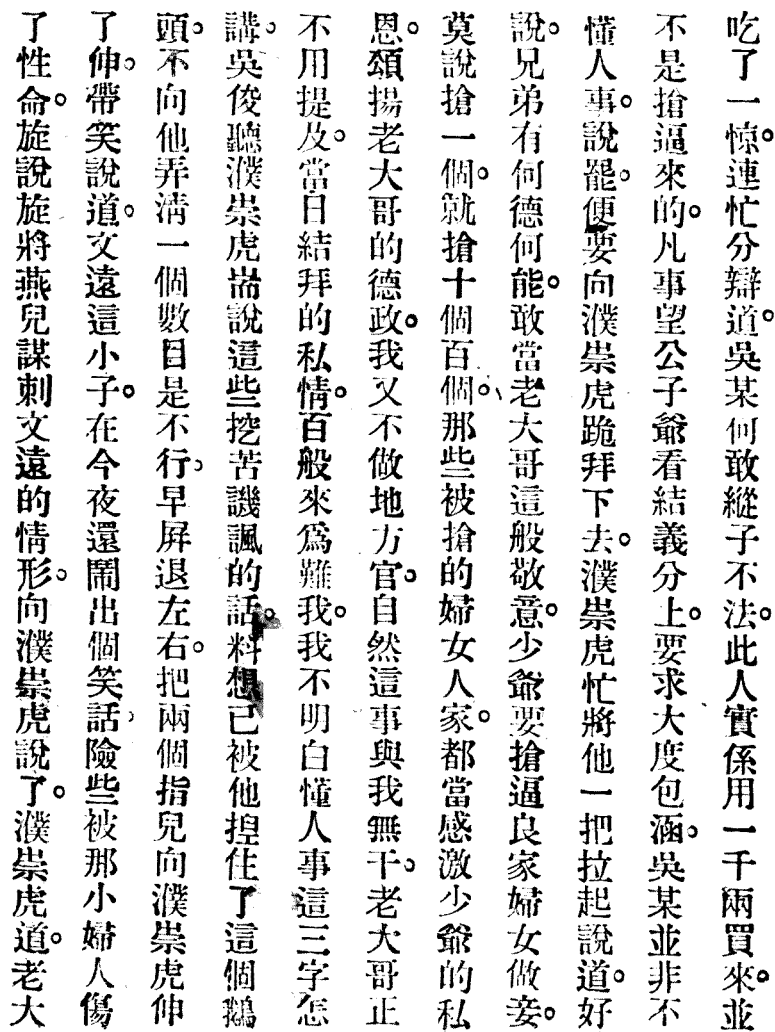 吃了一惊。連忙分辯道。吳某何敢縱子不法。此人實係用一千兩買來。並
不是搶逼來的。凡事望公子爺看結義分上。要求大度包涵。吳某並非不
懂人事。說罷。便要向濮崇虎跪拜下去。濮崇虎忙將他一把拉起說道。好
說。兄弟有何德何能。敢當老大哥這般敬意。少爺要搶逼良家婦女做妾。
莫說搶一個。就搶十個百個。那些被搶的婦女人家。都當感激少爺的私
恩。頌揚老大哥的德政。我又不做地方官。自然這事與我無干。老大哥正
不用提及。當日結拜的私情。百般來爲難我。我不明白懂人事這三字怎
講。吳俊聽濮崇虎耑說這些挖苦譏諷的話。料想已被他揑住了這個鵝
頭。不向他弄清一個數目是不行。早屏退左右。把兩個指兒向濮崇虎伸
了伸。帶笑說道。文遠這小子。在今夜還鬧出個笑話。險些被那小婦人傷
了性命。旋說旋將燕兒謀刺文遠的情形。向濮崇虎說了。濮崇虎道。老大